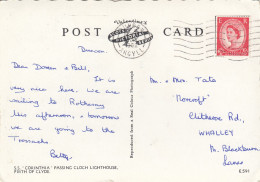 Valentine's
POST CARD
ARGYLL
Dunoon
Dear Doreen & Bill,
It is
very nice here. We are
waiting to Rothesay
this afternoon, & tomorrow
we are going to the
Trossachs
Betty.
Mr & Mrs Tate
"Roncroft"
Clitheroe Rd,
WHALLEY
Nr Blackburn
Lancs
Reproduced from a Real Colour Photograph
S.S. "CORINTHIA" PASSING CLOCH LIGHTHOUSE,
FIRTH OF CLYDE